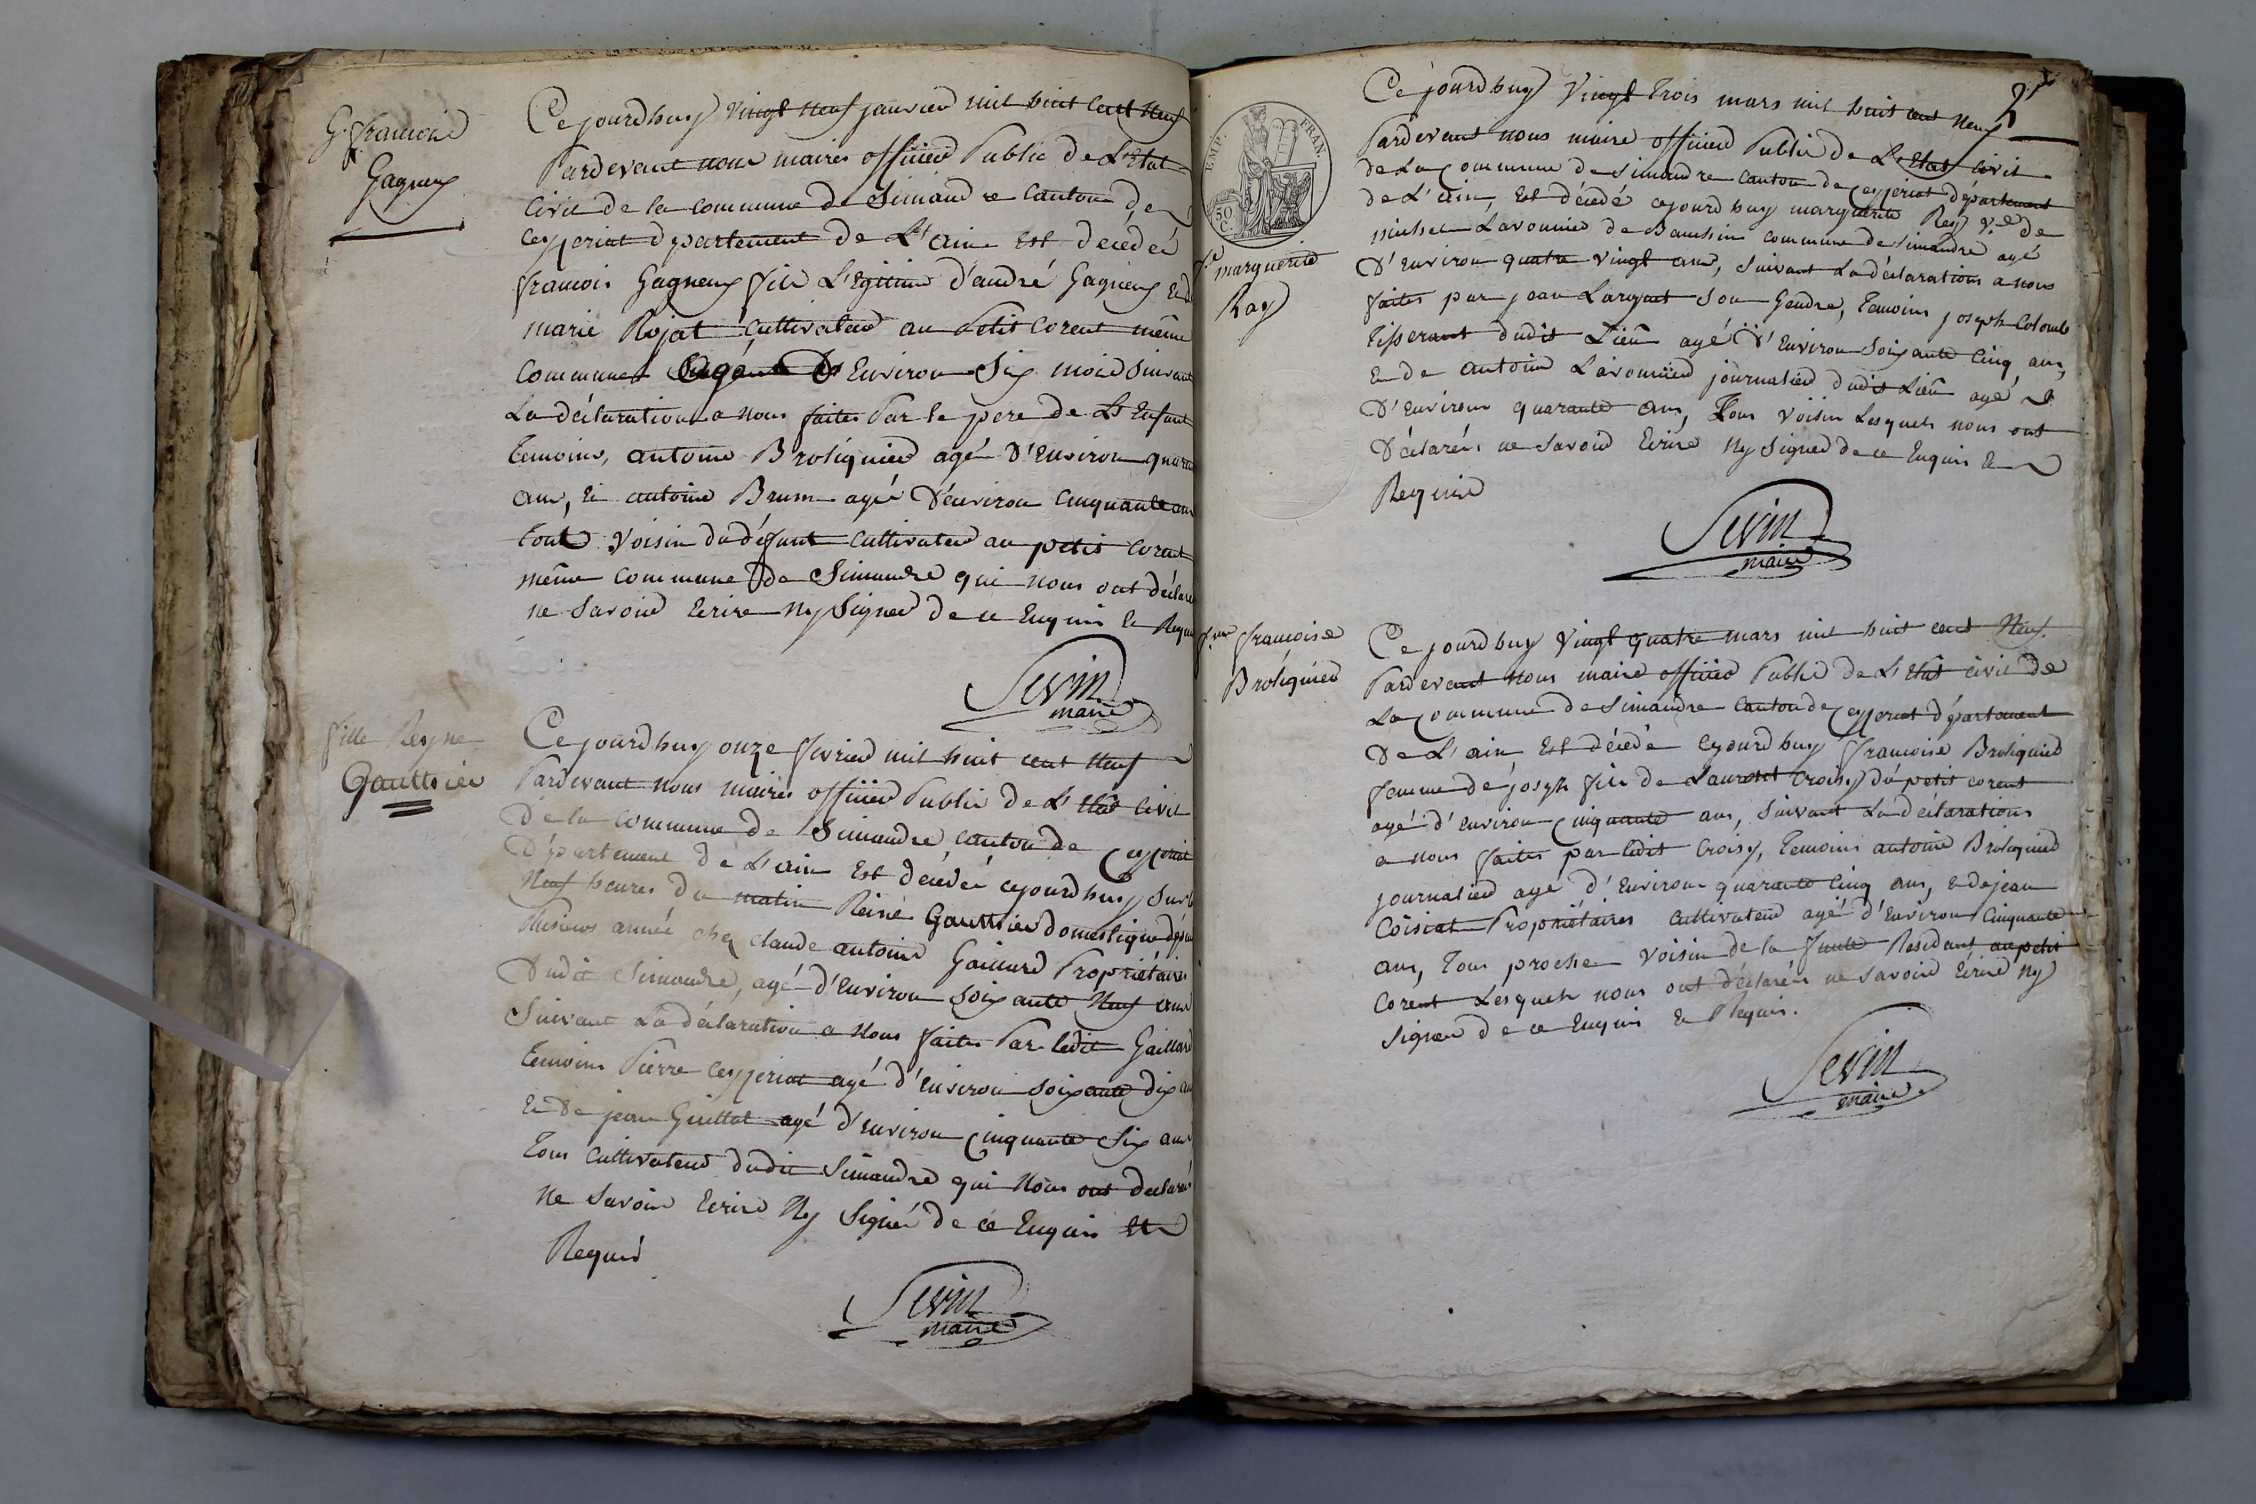 G. francois
Gagneux
Cejourdhuy vingt neuf janvier mil huit cent neuf
Pardevant nous maires officier Public de L'Etat
Civil de la commune de Simandre Canton de
ceyzeriat département de L'ain Est décédé
francois Gagneux fils L'Egitime d'andré Gagneux Et de
marie Rojat Cultivateur au Petit Corent même
commune D'Environ Six mois Suivant
La déclaration a nous faites Par le pere de L'Enfant
temoins, antoine Broliquier agé D'Environ quarante
ans, Et antoine Brun agé D'environ Cinquante ans
tout voisin du défunt Cultivateur au petit Corent
même Commune de Simandre qui nous ont déclaré
ne Savoir Ecrire Ny Signer de ce Enquis Et Requis
Sevin
maire
fille Reyne
Gautthier
Cejourdhuy onze fevrier mil huit cent Neuf
Pardevant nous maires officier Public de L'Etat Civil
De la Commune de Simandre Canton de Ceyzeriat
Département de L'ain Est décédé cejourdhuy Sur les
Neuf heures du matin Reine Gautthier domestique depuis
Plusieurs année chez claude antoine Gaillard Propriétaire
Dudit Simandre, agé d'Environ Soixante Neuf ans
Suivant La déclaration a Nous faites Par ledit Gaillard
temoins Pierre Ceyzeriat agé d'Environ Soixante dix ans
Et De jean Guillot agé d'Environ Cinquante Six ans
Tous Cultivateur dudit Simandre qui Nous ont déclarés
Ne Savoir Ecrire Ny Signer de ce Enquis Et
Requis
Sevin
maire
EMP. FRAN.
50
C.
Ve marguerite
Ray
Cejourdhuy Vingt Trois mars mil huit cent Neuf
Pardevant nous maire officier Public de L'Etat Civil
de La Commune de Simandre Canton de Ceyzeriat département
de L'ain, Est décédé cejourdhuy marguerite Rey Ve de
michel Lavounier de Banchin Commune de Simandre agé
D'Environ quatre vingt ans, Suivant La déclaration a nous
faites par jean Laruat Son Gendre, Temoins joseph Colomb
Tisserant dudit Lieu agé D'Environ Soixante Cinq ans,
Et de antoine Lavounier journalier dudit Lieu agé
D'Environ quarante ans, Tous Voisin Lesquels nous ont
Déclarés ne Savoir Ecrire Ny Signer de ce Enquis Et
Requis
Sevin
maire
fme francoise
Broliquier
Cejourdhuy Vingt quatre mars mil huit cent Neuf.
Pardevant Nous maire officier Public de L'Etat Civil de
La Commune de Simandre Canton de Ceyzeriat département
De L'ain Est décédé Cejourdhuy francoise Broliquier
femme de joseph fils de Laurent Croisy du petit corent
agé d'Environ Cinquante ans, Suivant La déclarations
a nous faites par ledit Croisy, Temoins antoine Broliquier
journalier agé d'Environ quarante Cinq ans, Et de jean
Coisiat Propriétaires Cultivateur agé d'Environ Cinquante
ans, Tous proche Voisin de la Résidant au petit
Corent Lesquels nous ont déclarés ne Savoir Ecrire Ny
Signer de ce Enquis Et Requis.
Sevin
maire